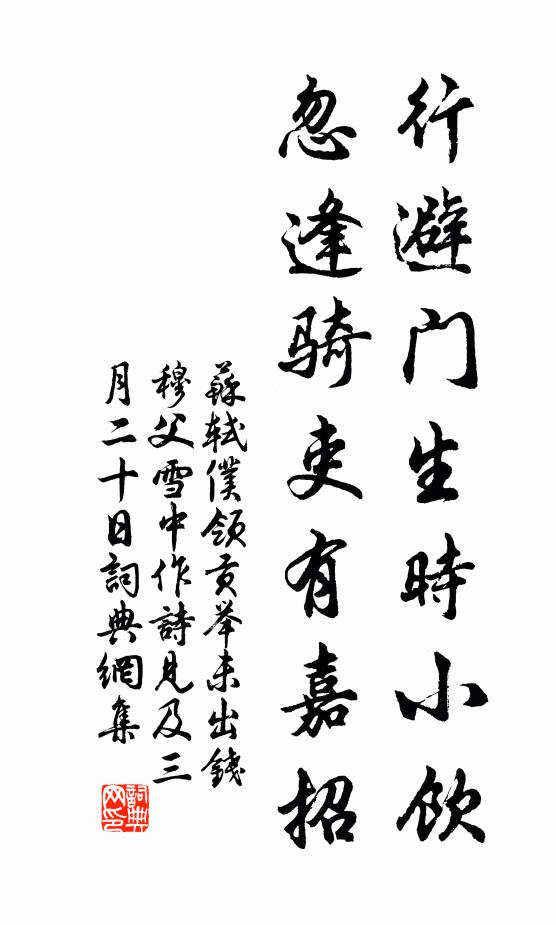 行避门生時小飲
忽逢骑吏有嘉招
蘇軾僕领貢举未出錢
穆父雪中作詩見及三
月二十日詞典網集
詞典网印